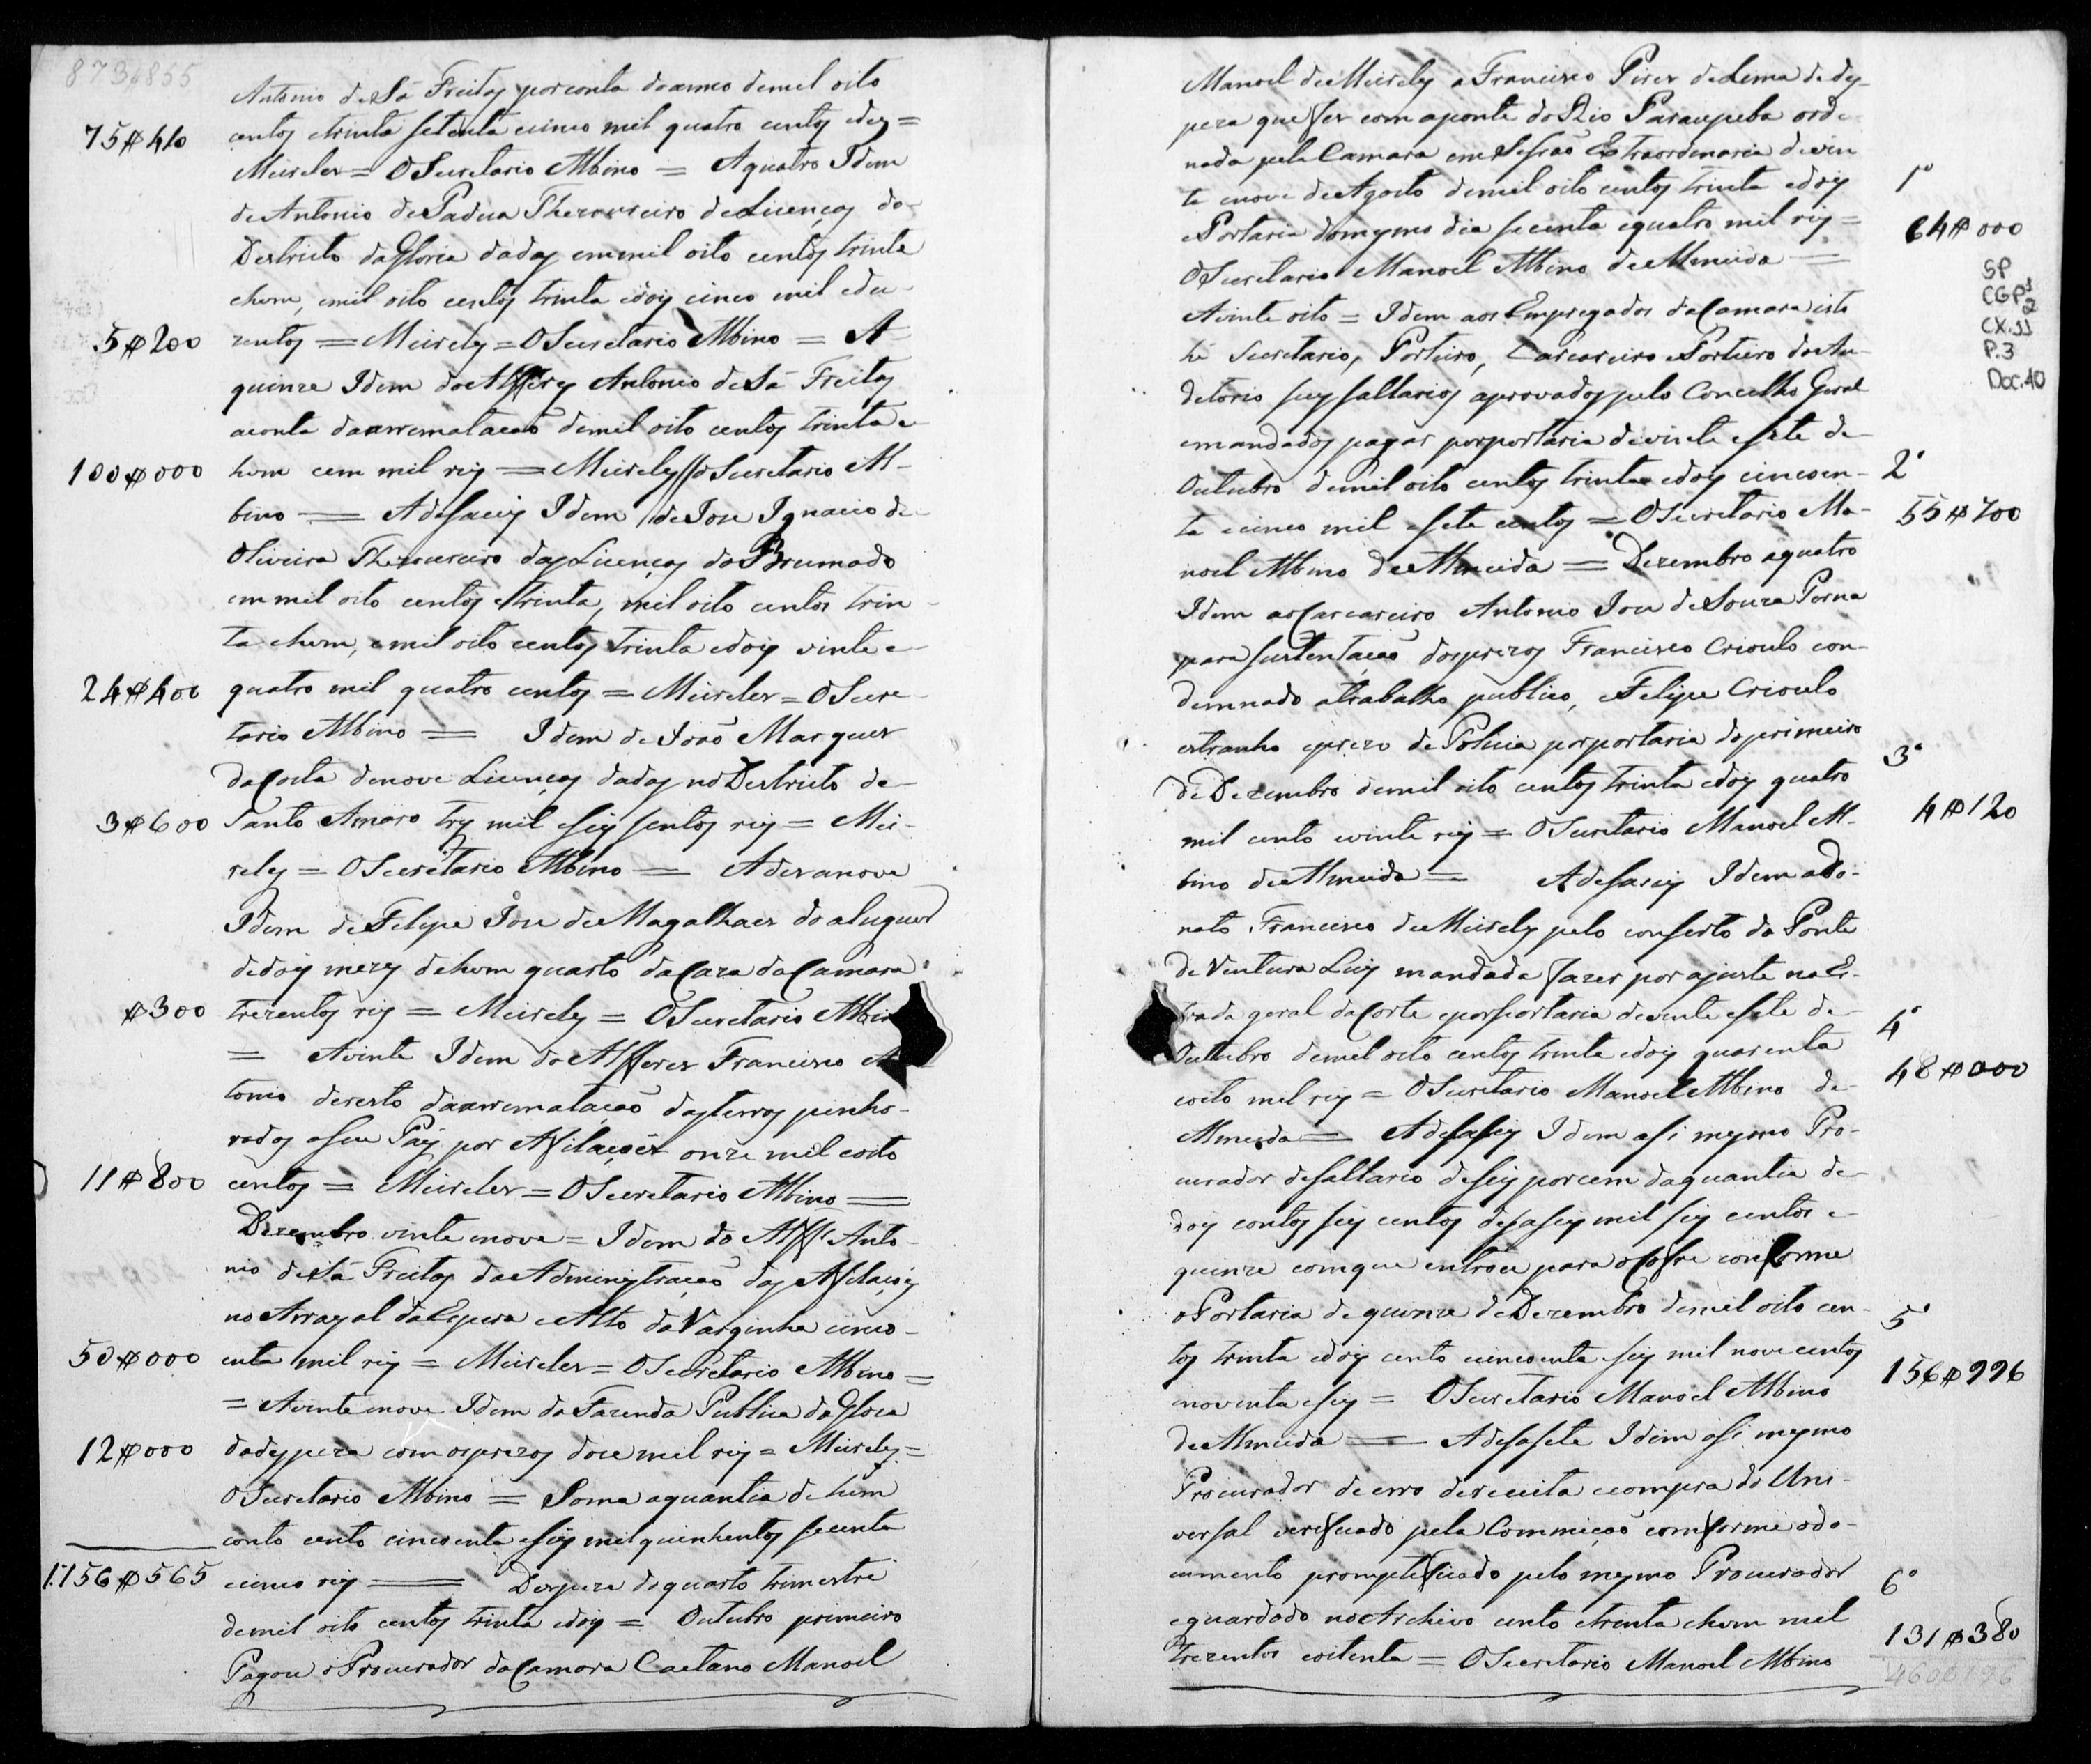 8736855
Antonio de Sá Freitas por conta do anno de mil oito
75$410 centos etrinta setenta ecinco mil quatro centos edez =
Meireles = O Secretario Albino = Aquatro Idem
de Antonio de Padua Thezoureiro de Licenças do
Destricto da Gloria dadas em mil oito centos trinta
ehum, emil oito centos trinta edois cinco mil edu-
5$200 zentos = Meireles = O Secretario Albino = A
quinze Idem do Alferes Antonio de Sá Freitas
aconta daarrematacaõ demil oito centos trinta e
100$000 hum cem mil reis = Meireles // O Secretario Al-
bino = Adesaceis Idem de Joze Ignacio de
Oliveira Thezoureiro das Licenças do Brumado
em mil oito centos etrinta, mil oito centos trin
ta ehum, emil oito centos trinta edois vinte e
24$400 quatro mil quatro centos = Meireles = O Secre
tario Albino = Idem de Joaõ Marques
da Costa denove Licenças dadas no Destricto de
3$600 Santo Amaro tres mil eseis sentos reis = Mei-
reles = O Secretario Albino = Adezanove
Idem de Felipe Joze de Magalhaes do aluguer
dedois mezes dehum quarto da Caza da Camara
$300 trezentos reis = Meireles = O Secretario Albin
= Avinte Idem do Alferes Francisco An
tonio deresto daarremataçaõ dasterras penho-
radas aseu Pay por Afilaçoẽs onze mil eoito
11$800 centos = Meireles = O Secretario Albino =
Dezembro vinte enove = Idem do Alfs Anto-
nio de Sá Freitas da Administraçaõ das Afilaçoẽs
no Arrayal da Espera e Alto da Varginha cinco-
50$000 enta mil reis = Meireles = O Secretario Albino =
= Avinte enove Idem da Fazenda Publica da Gloria
12$000 dadespeza com osprezos doze mil reis = Meireles =
O Secretario Albino = Soma aquantia de hum
conto cento cincoenta eseis mil quinhentos secenta
1:156$565 ecinco reis = Despeza doquarto trimestre
demil oito centos trinta edois = Outubro primeiro
Pagou o Procurador da Camara Caetano Manoel
Manoel de Meireles a Francisco Pires de Lima da des
peza que fez com aponte do Rio Paraupeba orde
nada pela Camara em Sessaõ Extraordinaria de vin
te enove de Agosto demil oito centos trinta edois 1º
ePortaria domesmo dia secenta equatro mil reis = 64$000
O Secretario Manoel Albino de Almeida =
Avinte oito = Idem aos Empregados da Camara isto
hé Secretario, Porteiro, Carcareiro ePortiero do Au-
detorio seus sallarios aprovados pelo Concelho Geral
emandados pagar porportaria devinte esete de
Outubro demil oito centos trinta edois cincoen- 2º
ta ecinco mil esete centos = O Secretario Ma- 55$700
noel Albino de Almeida = Dezembro aquatro
Idem ao Carcareiro Antonio Joze de Souza Perna
para sustentaçaõ dosprezos Francisco Crioulo con-
demnado atrabalho publico, eFelipe Crioulo
estranho eprezo de Policia porportaria doprimeiro
de Dezembro demil oito centos trinta edois quatro 3º
mil cento evinte reis = O Secretario Manoel Al- 4$120
bino de Almeida = Adesaceis Idem aDo-
nato Francisco de Meireles pelo conserto da Ponte
de Ventura Luis mandada fazer por ajuste na Es-
trada geral da Corte eporportaria devinte esete de
Outubro demil oito centos trinta edois quarenta 4º
eoito mil reis = O Secretario Manoel Albino de 48$000
Almeida = Adesaseis Idem asi mesmo Pro-
curador desallario deseis porcem daquantia de
dois contos seis centos desaseis mil seis centos e
quinze comque entrou para oCofre conforme
aPortaria de quinze de Dezembro demil oito cen-
tos trinta edois cento cincoenta seis mil nove centos 5º
noventa eseis = O Secretario Manoel Albino 156$996
de Almeida = Adesasete Idem asi mesmo
Procurador de erro dereceita ecompra do Uni-
versal verificado pela Commiçaõ comforme odo-
cumento promptificado pelo mesmo Procurador
eguardado noArchivo cento etrinta ehum mil 6º
trezentos eoitenta = O Secretario Manoel Albino 131$380
460$196
SP
CGP1
2
CX.11
P.3
Doc.40